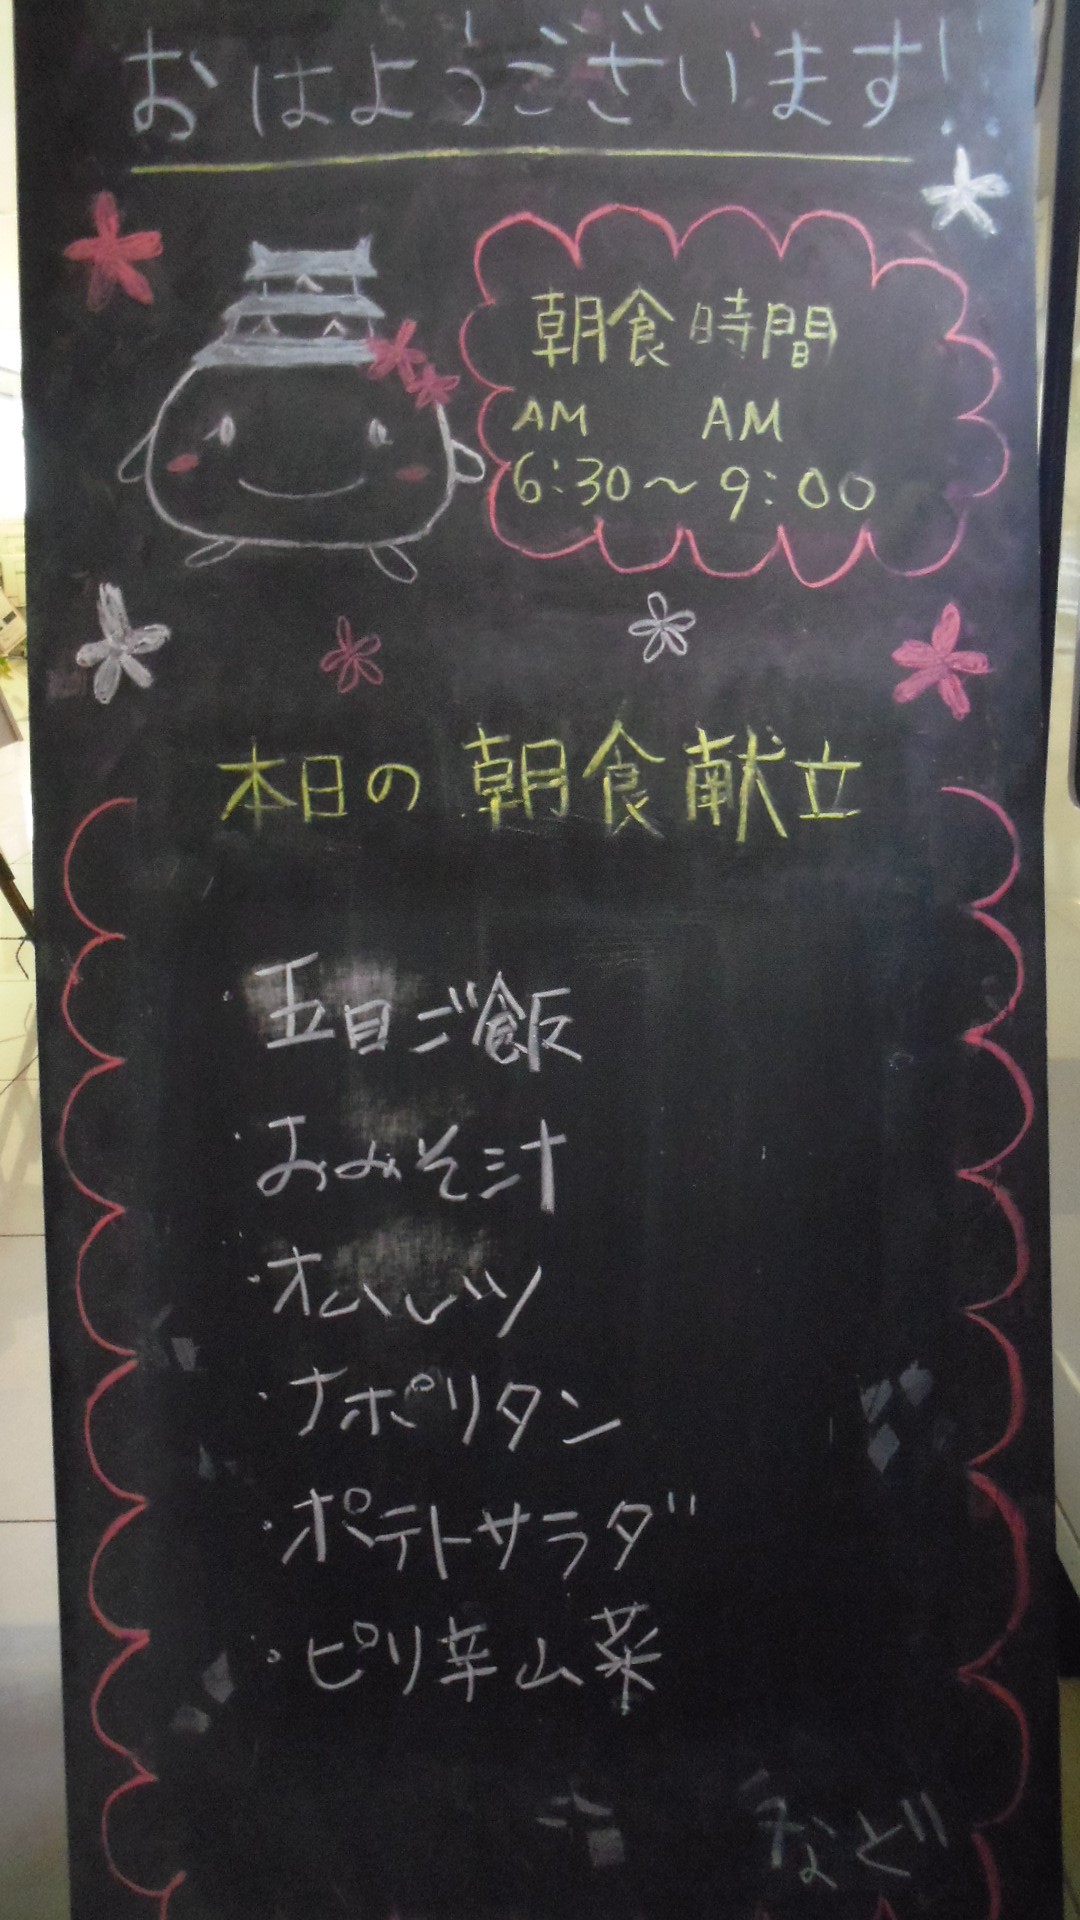 おはようございます!!
朝食時間
AM AM
6:30～9:00
本日の朝食献立
・五目ご飯
・おみそ汁
・オムレツ
・ナポリタン
・ポテトサラダ
・ピリ辛山菜
など